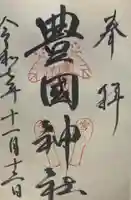 奉拝
豊國神社
令和六年十一月十三日